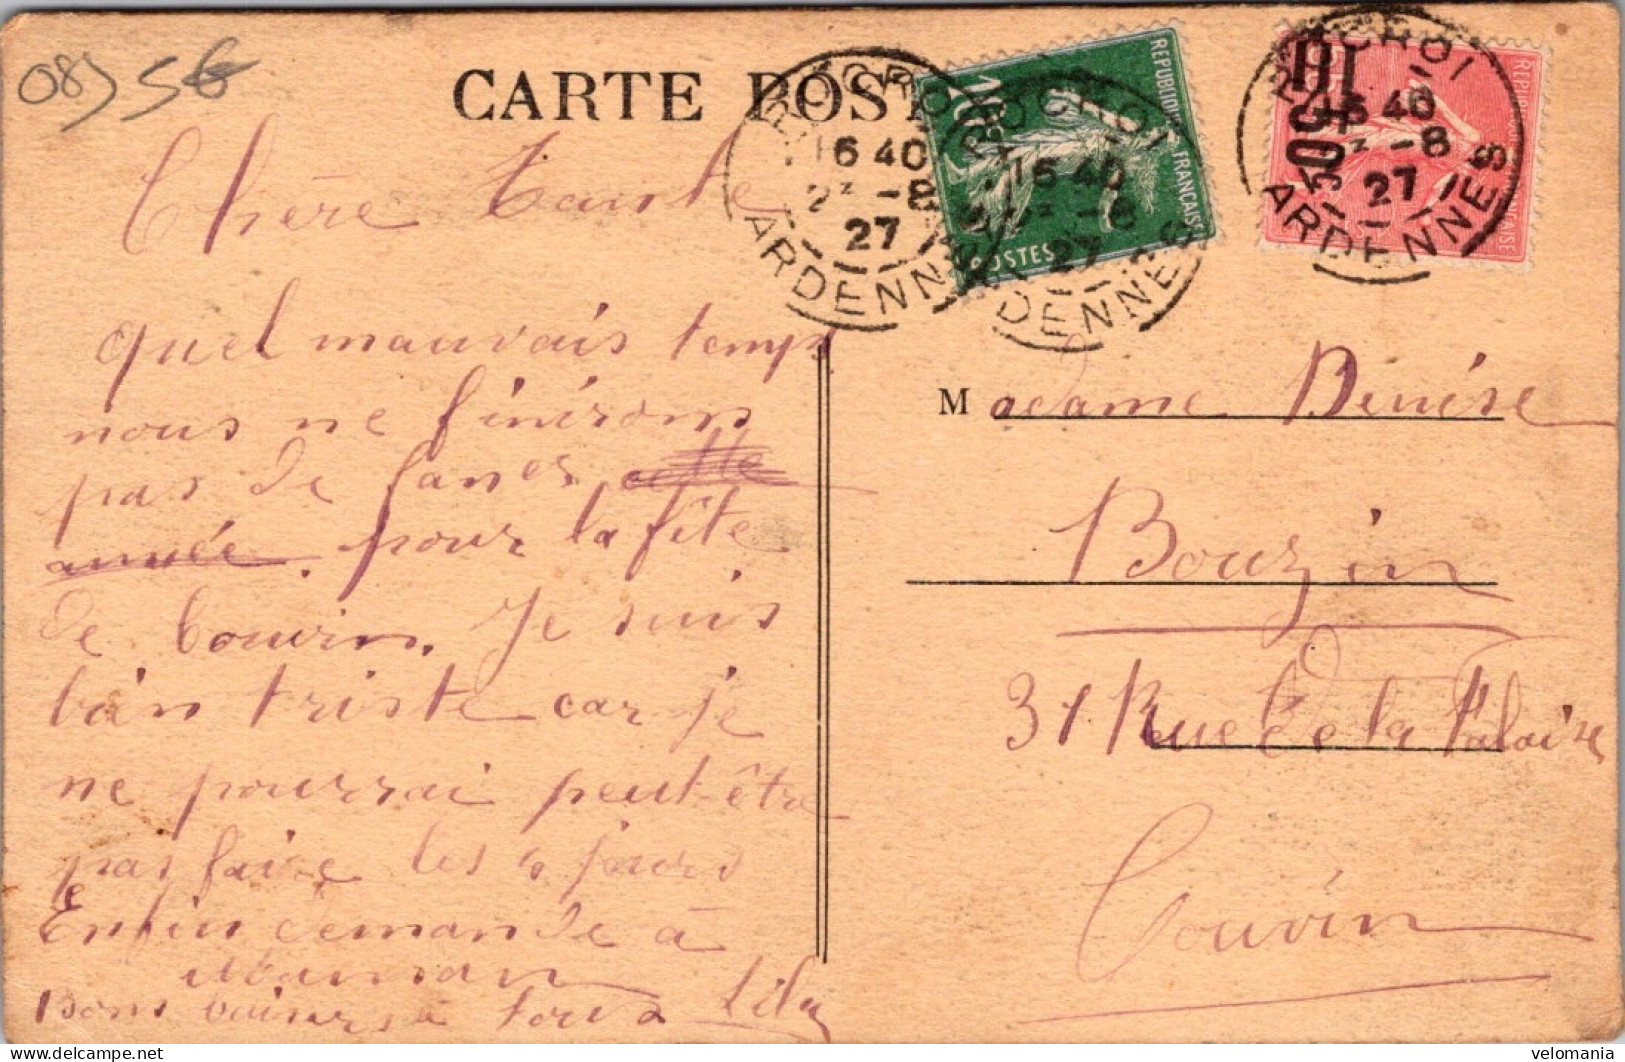 08) 56
CARTE POST
ROCROI
16 40
2* -8
27
ARDENNES
ROCROI
16 40
2* -8
27
ARDENNES
10c
REPUBLIQUE FRANÇAISE
POSTES
ROCROI
16 40
2* -8
27
ARDENNES
50c
Chère Tante
quel mauvais temps
nous ne finirons
pas de faner cette
année. pour la fête
de Couvin. Je suis
bien triste car je
ne pourrai peut-être
pas faire les 4 jours
Enfin demande à
Maman
Bons baisers à tous Lily
Madame
Bouzin
31 Rue de la Falaise
Couvin
velomania
© DELCAMPE